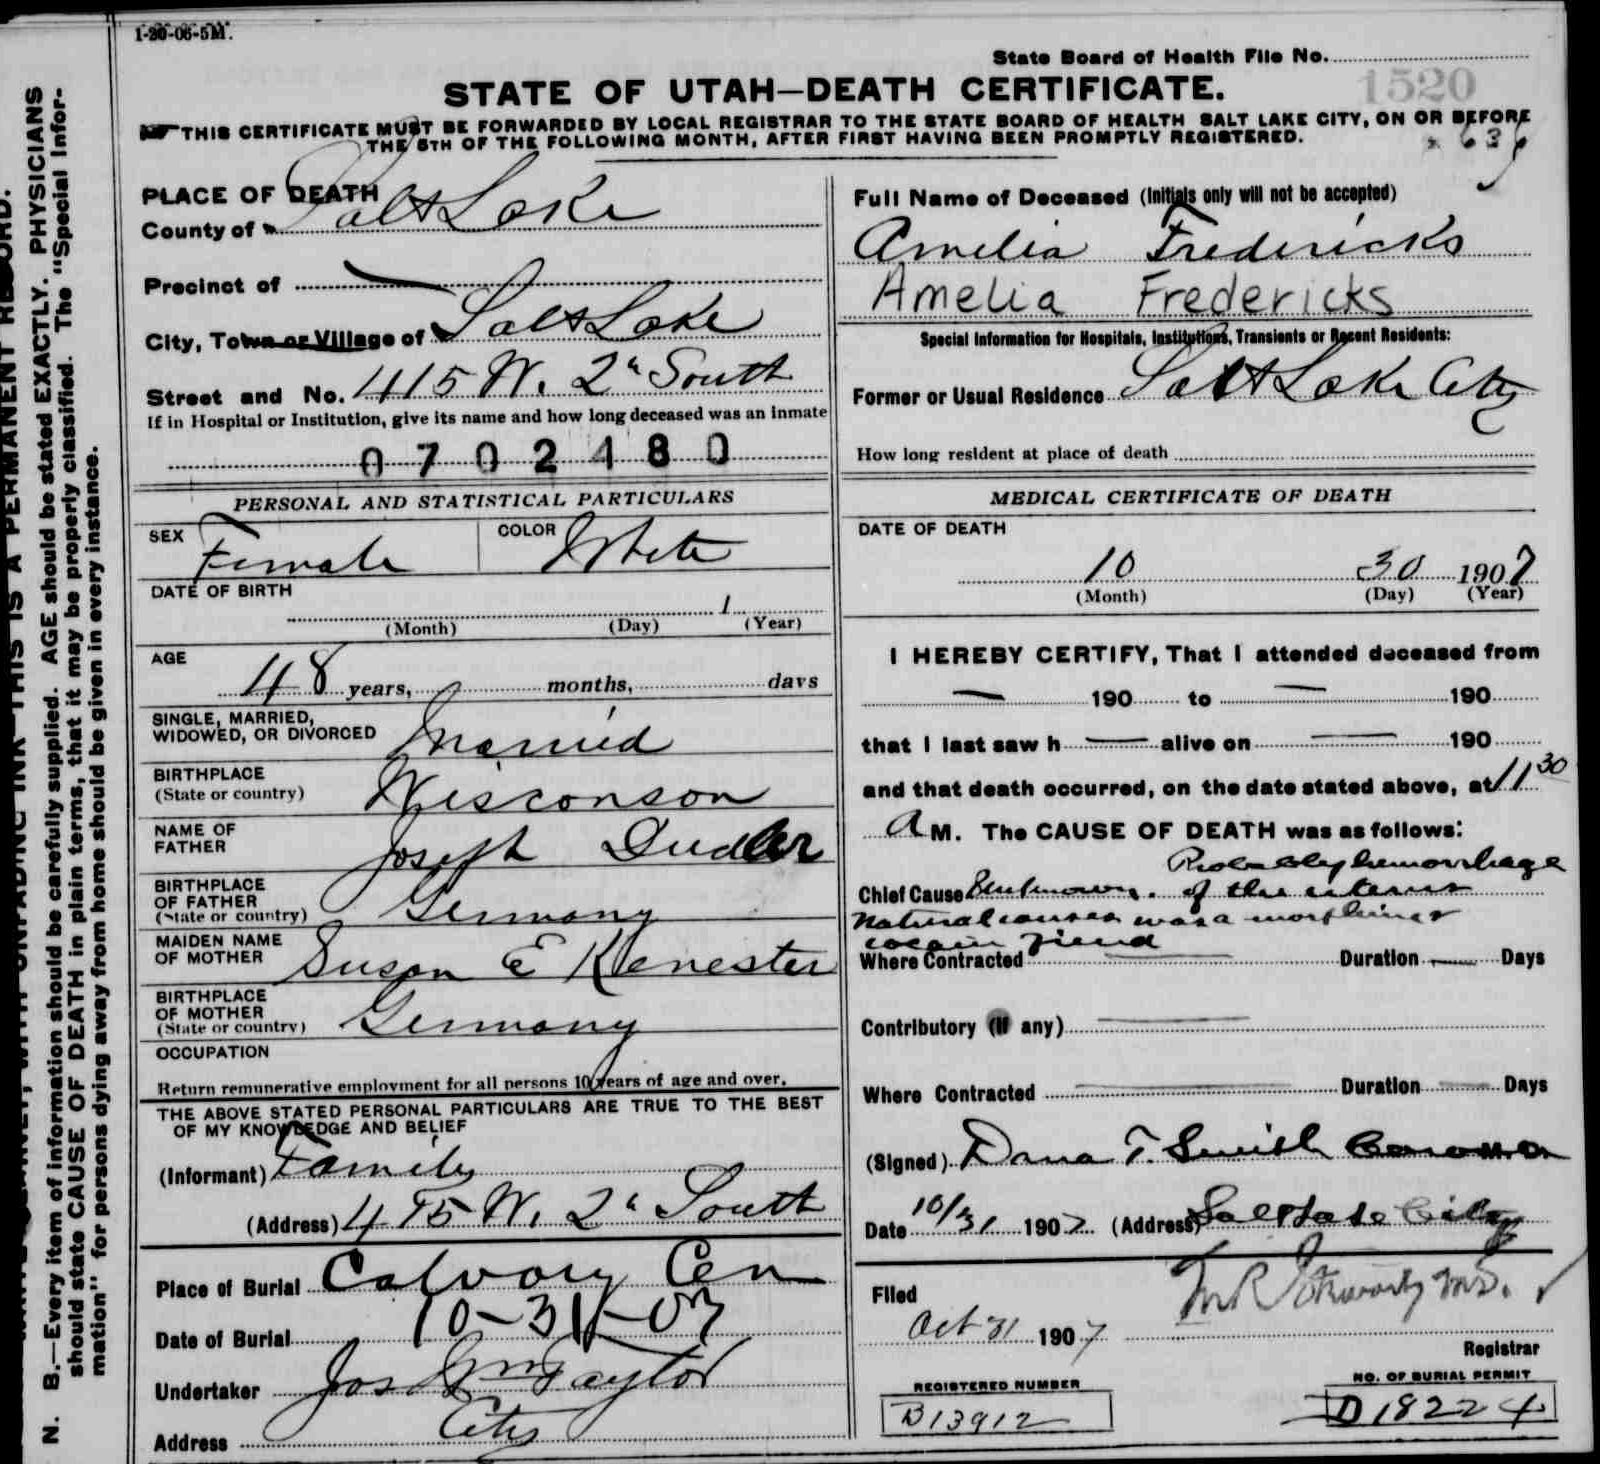 1-20-06-5M.
State Board of Health File No. 1520
STATE OF UTAH—DEATH CERTIFICATE.
THIS CERTIFICATE MUST BE FORWARDED BY LOCAL REGISTRAR TO THE STATE BOARD OF HEALTH SALT LAKE CITY, ON OR BEFORE
THE 5TH OF THE FOLLOWING MONTH, AFTER FIRST HAVING BEEN PROMPTLY REGISTERED.
636
PLACE OF DEATH
County of Salt Lake
Precinct of
City, Town or Village of Salt Lake
Street and No. 415 W. 2" South
If in Hospital or Institution, give its name and how long deceased was an inmate
0702480
PERSONAL AND STATISTICAL PARTICULARS
SEX Female COLOR White
DATE OF BIRTH
1
(Month) (Day) (Year)
AGE
48 years, months, days
SINGLE, MARRIED,
WIDOWED, OR DIVORCED Married
BIRTHPLACE
(State or country) Wisconson
NAME OF
FATHER Joseph Dudler
BIRTHPLACE
OF FATHER
(State or country) Germany
MAIDEN NAME
OF MOTHER Susan E Kenester
BIRTHPLACE
OF MOTHER
(State or country) Germany
OCCUPATION
Return remunerative employment for all persons 10 years of age and over.
THE ABOVE STATED PERSONAL PARTICULARS ARE TRUE TO THE BEST
OF MY KNOWLEDGE AND BELIEF
(Informant) Family
(Address) 415 W. 2" South
Place of Burial Calvory Cem
Date of Burial 10-31-07
Undertaker Jos Wm Taylor
Address City
Full Name of Deceased (Initials only will not be accepted)
Amelia Fredericks
Amelia Fredericks
Special Information for Hospitals, Institutions, Transients or Recent Residents:
Former or Usual Residence Salt Lake City
How long resident at place of death
MEDICAL CERTIFICATE OF DEATH
DATE OF DEATH
10 30 1907
(Month) (Day) (Year)
I HEREBY CERTIFY, That I attended deceased from
— 190 to — 190
that I last saw h — alive on — 190
and that death occurred, on the date stated above, at 11 30
A M. The CAUSE OF DEATH was as follows:
Probably hemorrhage
Chief Cause Unknown. of the uterus
Natural causes was a morphine &
cocain fiend
Where Contracted — Duration — Days
Contributory (if any) —
Where Contracted — Duration — Days
(Signed) Dana T. Smith Coroner
Date 10/31 1907 (Address) Salt Lake City
Filed
Oct 31 1907
M.D.
Registrar
REGISTERED NUMBER
B13912
NO. OF BURIAL PERMIT
D18224
N. B.—Every item of information should be carefully supplied. AGE should be stated EXACTLY. PHYSICIANS
should state CAUSE OF DEATH in plain terms, that it may be properly classified. The "Special Infor-
mation" for persons dying away from home should be given in every instance.
THIS IS A PERMANENT RECORD.